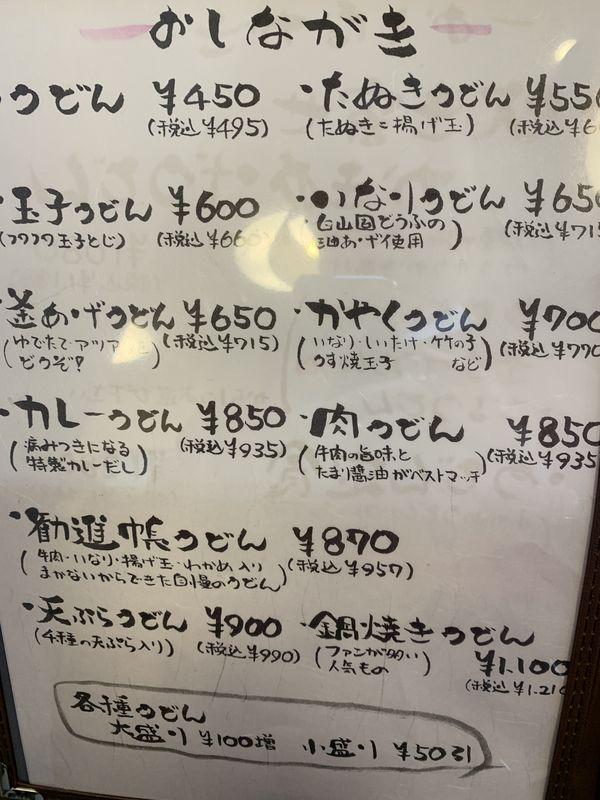 おしながき
うどん ¥450
(税込¥495)
・たぬきうどん ¥550
(たぬき=揚げ玉) (税込¥6
・玉子うどん ¥600
(フワフワ玉子とじ) (税込¥660)
・いなりうどん ¥650
(白山国どうふの
油あげ使用) (税込¥715
釜あげうどん ¥650
(ゆでたてアツアツ
どうぞ!) (税込¥715)
・かやくうどん ¥700
(いなり・しいたけ・竹の子
うす焼玉子 など) (税込¥770
・カレーうどん ¥850
(病みつきになる
特製カレーだし) (税込¥935)
・肉うどん ¥850
(牛肉の旨味と
たまり醤油がベストマッチ) (税込¥935
・勧進帳うどん ¥870
(牛肉・いなり・揚げ玉・わかめ入り
まかないからできた自慢のうどん) (税込¥957)
・天ぷらうどん ¥900
(4種の天ぷら入り) (税込¥990)
・鍋焼きうどん
(ファンが多い
人気もの) ¥1,100
(税込¥1,210
各種うどん
大盛り ¥100増 小盛り ¥50引